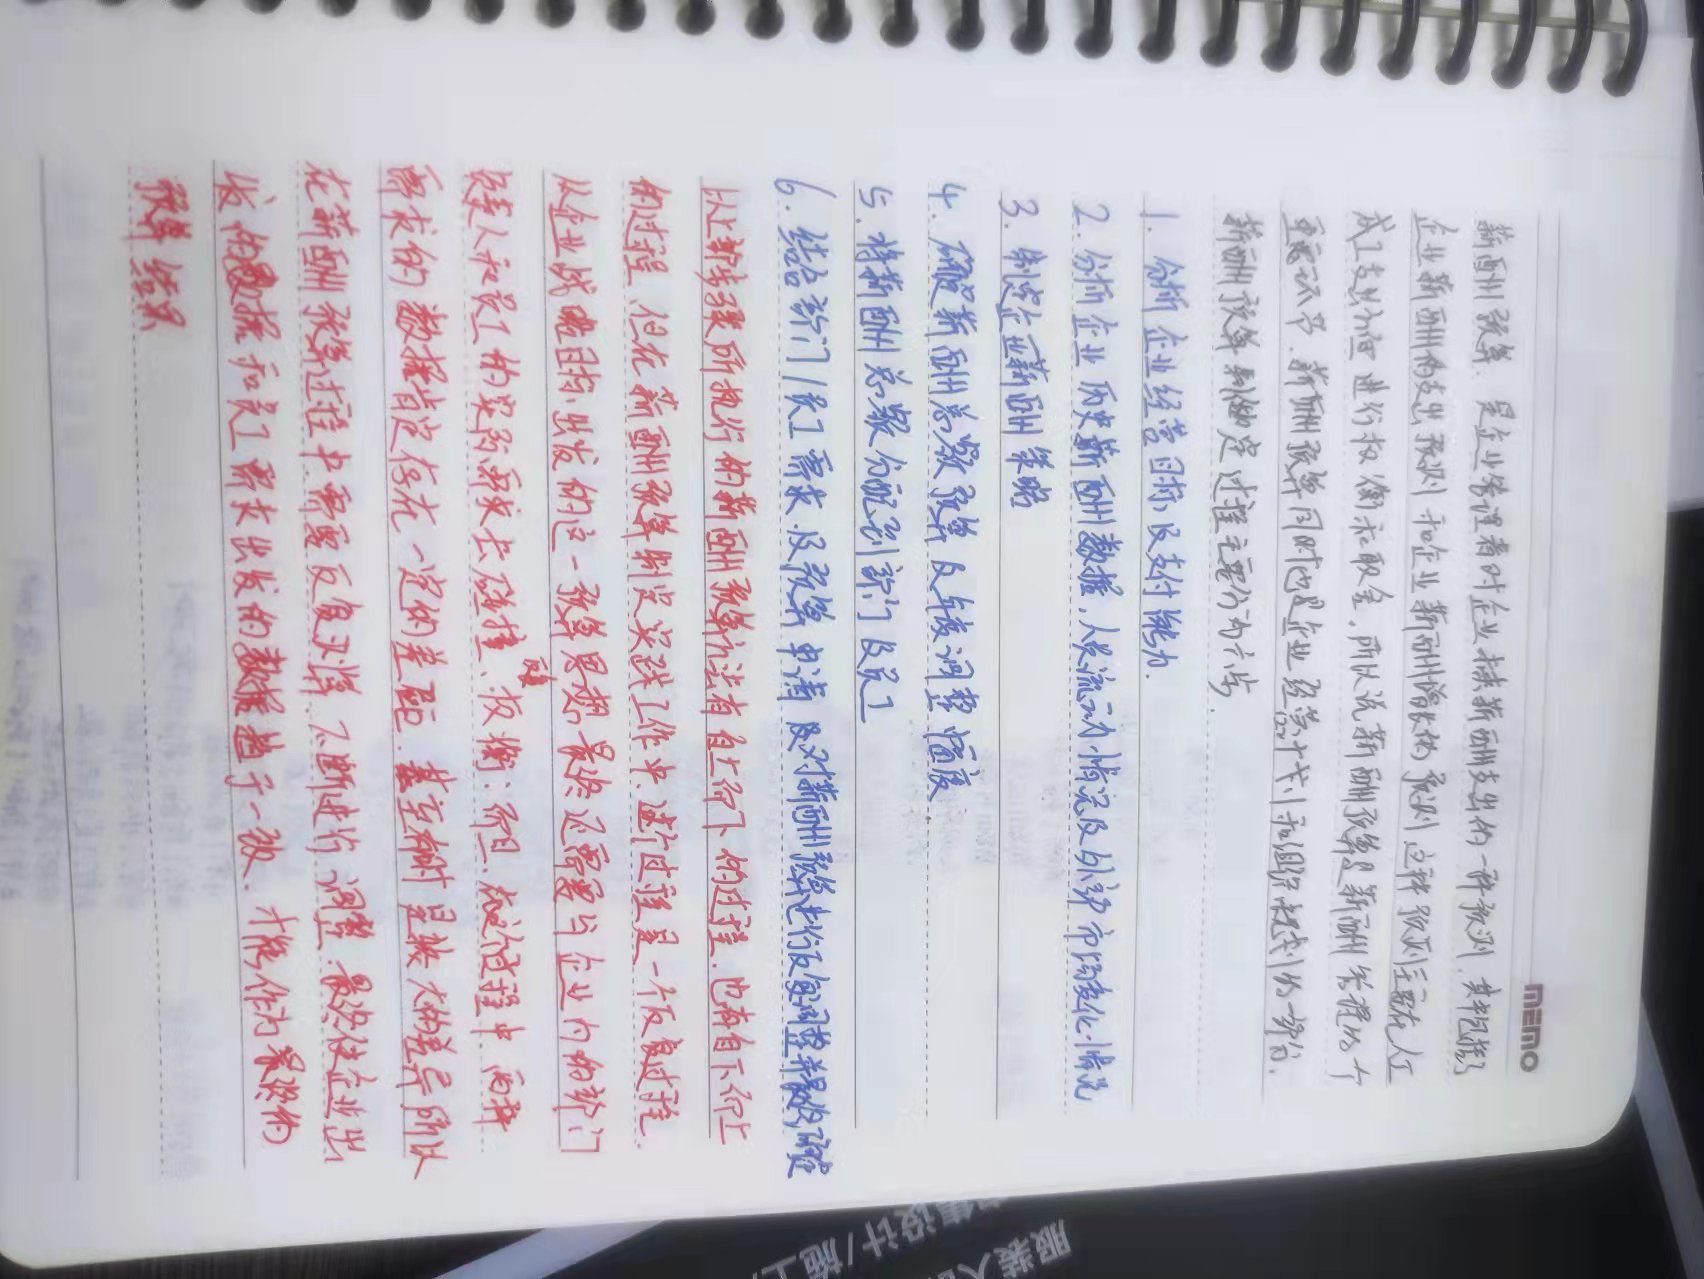 MEMO
薪酬预算，是企业管理者对企业未来薪酬支出的一种预测，其中包括了
企业薪酬的支出预测和企业薪酬增长的预测，这种预测主要在人工
成本支出如何进行权衡和取舍，所以说薪酬预算是薪酬管理的一个
重要环节，薪酬预算同时也是企业经营计划和组织规划的一部分。
薪酬预算制定过程主要分为六步。
1. 分析企业经营目标及支付能力。
2. 分析企业历史薪酬数据，人员流动情况及外部市场变化情况
3. 制定企业薪酬策略
4. 确定薪酬总额预算及年度调整幅度。
5. 将薪酬总额分配到部门及员工
6. 结合部门/员工需求及预算申请及对薪酬预算进行反复调整并最终确定
以上部步骤所执行的薪酬预算方法有自上而下的过程，也有自下而上
的过程，但在薪酬预算制定实践工作中，进行过程是一个反复过程。
从企业战略目标出发的这一预算思想最终还需要与企业内的部门
负责人和员工的实际要求去碰撞、反复权衡；而且，在这个过程中，两种
需求的数据肯定存在一定的差距，甚至有时是较大的差异，所以
在薪酬预算过程中需要反复对撞，不断进行调整，最终使企业出
发的数据和员工需求出发的数据趋于一致，才能作为最终的
预算结果
服装人
集设计/施工